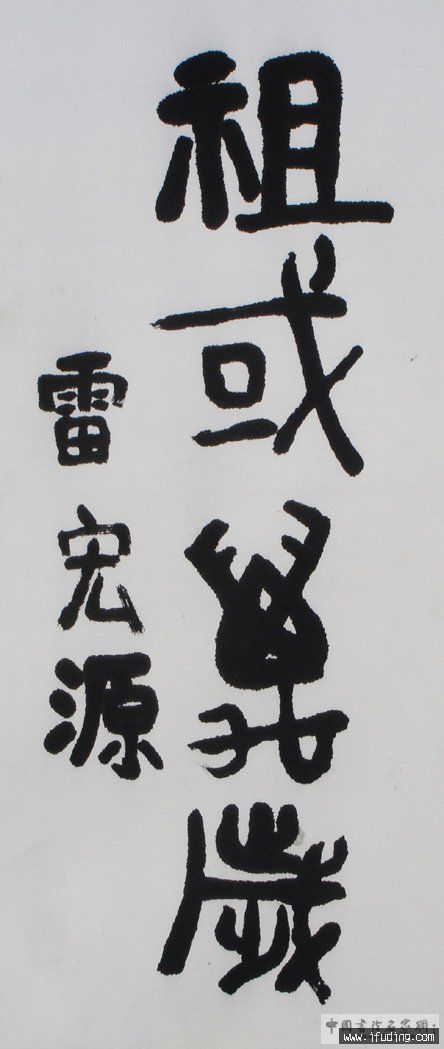 祖或萬歲
雷宏源
中国书法名家网
www.ifuding.com